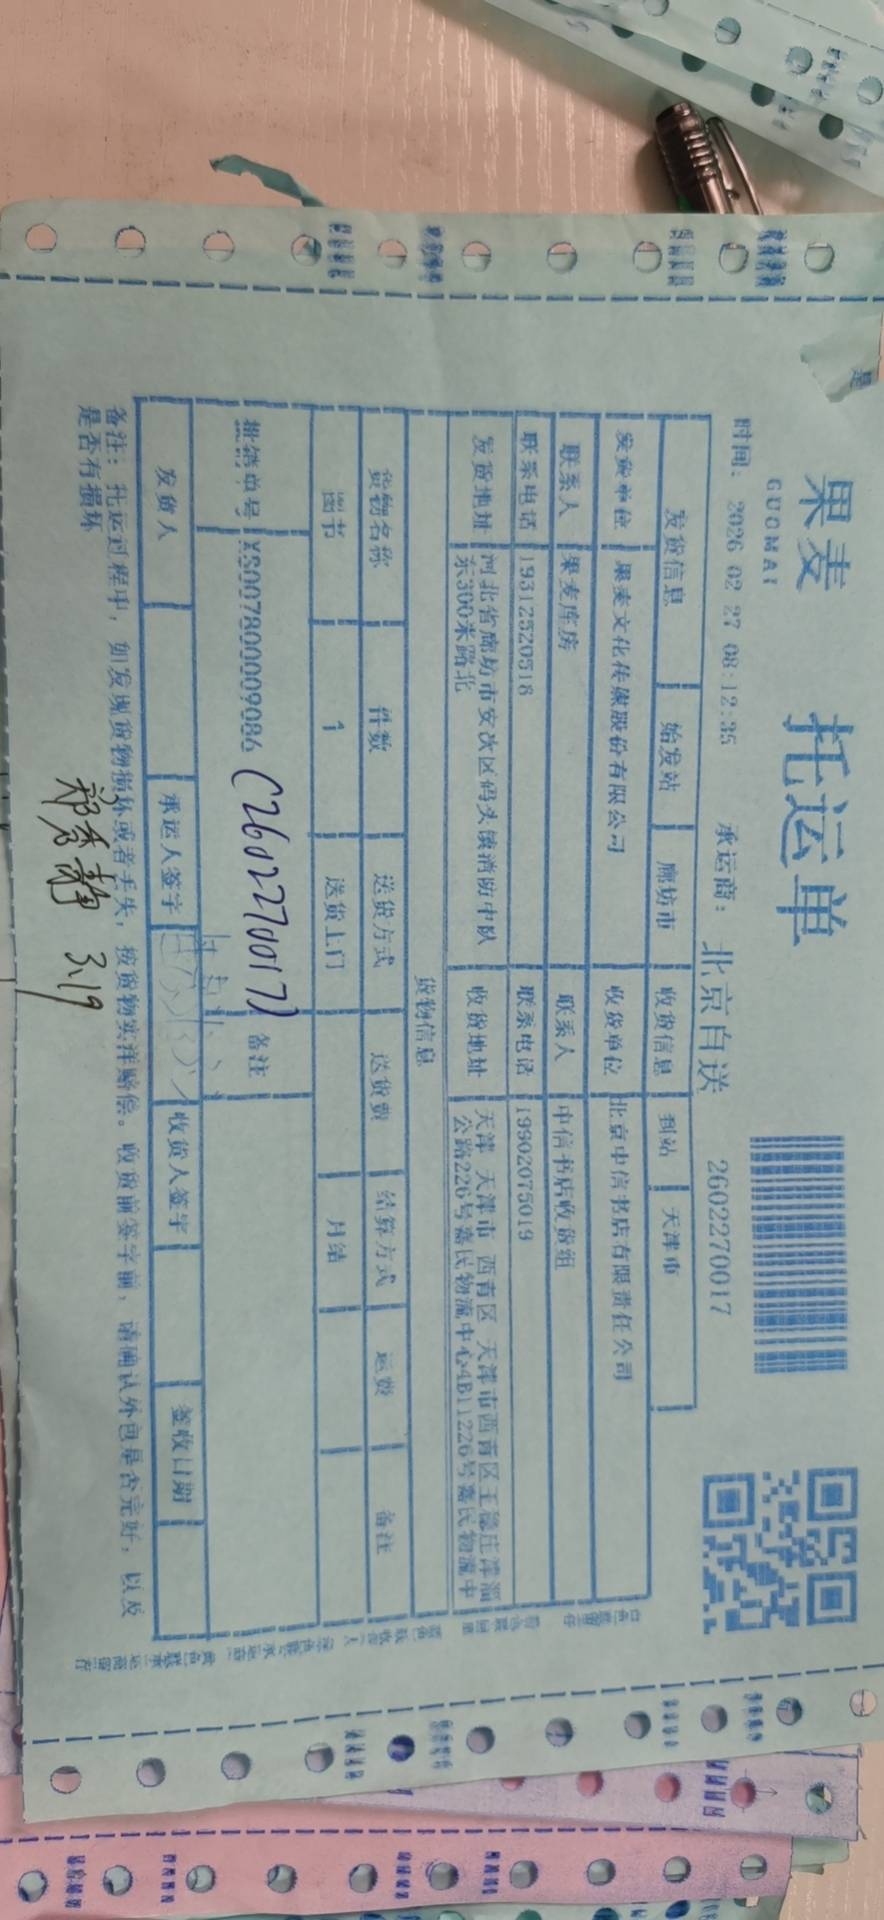 果麦 托运单
GUOMAI
时间: 2026 02 27 08:12:35 承运商: 北京自送 2602270017
发货信息 始发站 廊坊市 收货信息 到站 天津市
发货单位 果麦文化传媒股份有限公司 收货单位 北京中信书店有限责任公司
联系人 果麦库房 联系人 中信书店收货组
联系电话 19312520518 联系电话 19902075019
发货地址 河北省廊坊市安次区码头镇消防中队 收货地址 天津 天津市 西青区 天津市西青区王稳庄津淄
东300米路北 公路226号嘉民物流中心4B11226号嘉民物流中
货物信息
货物名称 件数 送货方式 送货费 结算方式 运费 备注
图书 1 送货上门 月结
批销单号 XS007800009086 (2602270017) 备注
发货人 承运人签字 收货人签字 签收日期
备注: 托运过程中, 如发现货物损坏或者丢失, 按货物实洋赔偿。收货前签字前, 请确认外包是否完好, 以及
是否有损坏
郝秀静 3.19